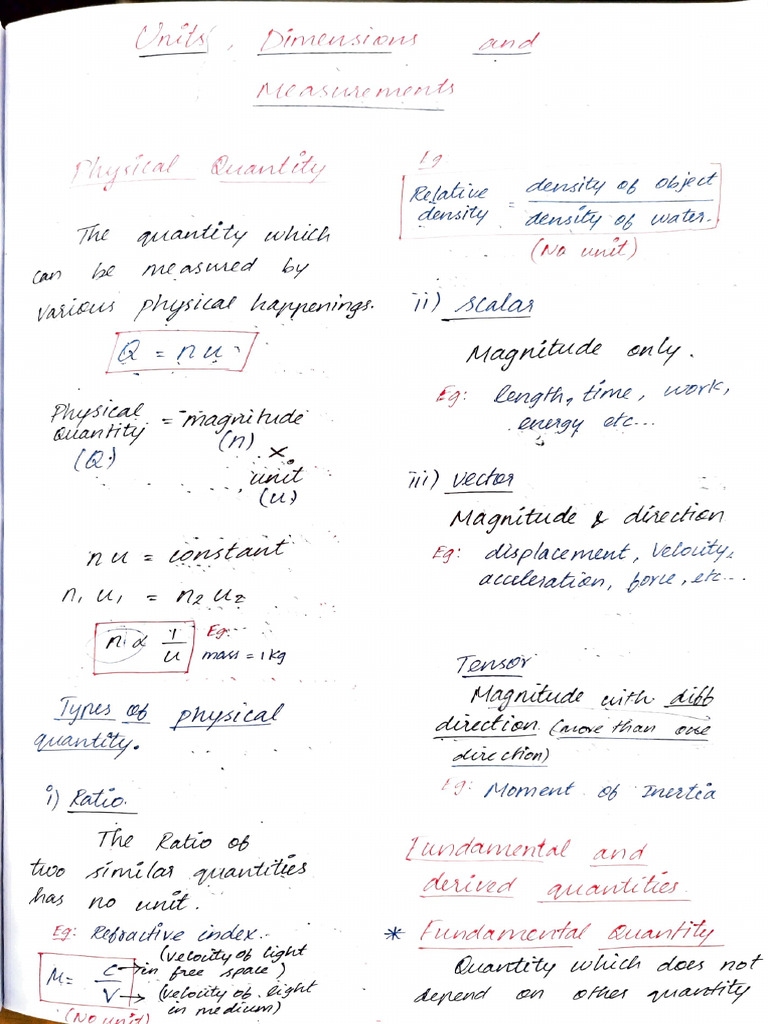 Units, Dimensions and
Measurements
Physical Quantity
The quantity which
can be measured by
various physical happenings.
Q = nu
Physical
Quantity = magnitude
(Q) (n)
×
unit
(u)
nu = constant
n₁ u₁ = n₂ u₂
n ∝ 1/u Eg: mass = 1kg
Types of physical
quantity.
i) Ratio.
The Ratio of
two similar quantities
has no unit.
Eg: Refractive index.
μ = c/v
c → (velocity of light
in free space)
v → (velocity of light
in medium)
(No unit)
Eg
Relative density = density of object / density of water.
(No unit)
ii) scalar
Magnitude only.
Eg: length, time, work,
energy etc...
iii) vector
Magnitude & direction
Eg: displacement, velocity,
acceleration, force, etc...
Tensor
Magnitude with diff
direction (more than one
direction)
Eg: Moment of Inertia
Fundamental and
derived quantities.
* Fundamental Quantity
Quantity which does not
depend on other quantity